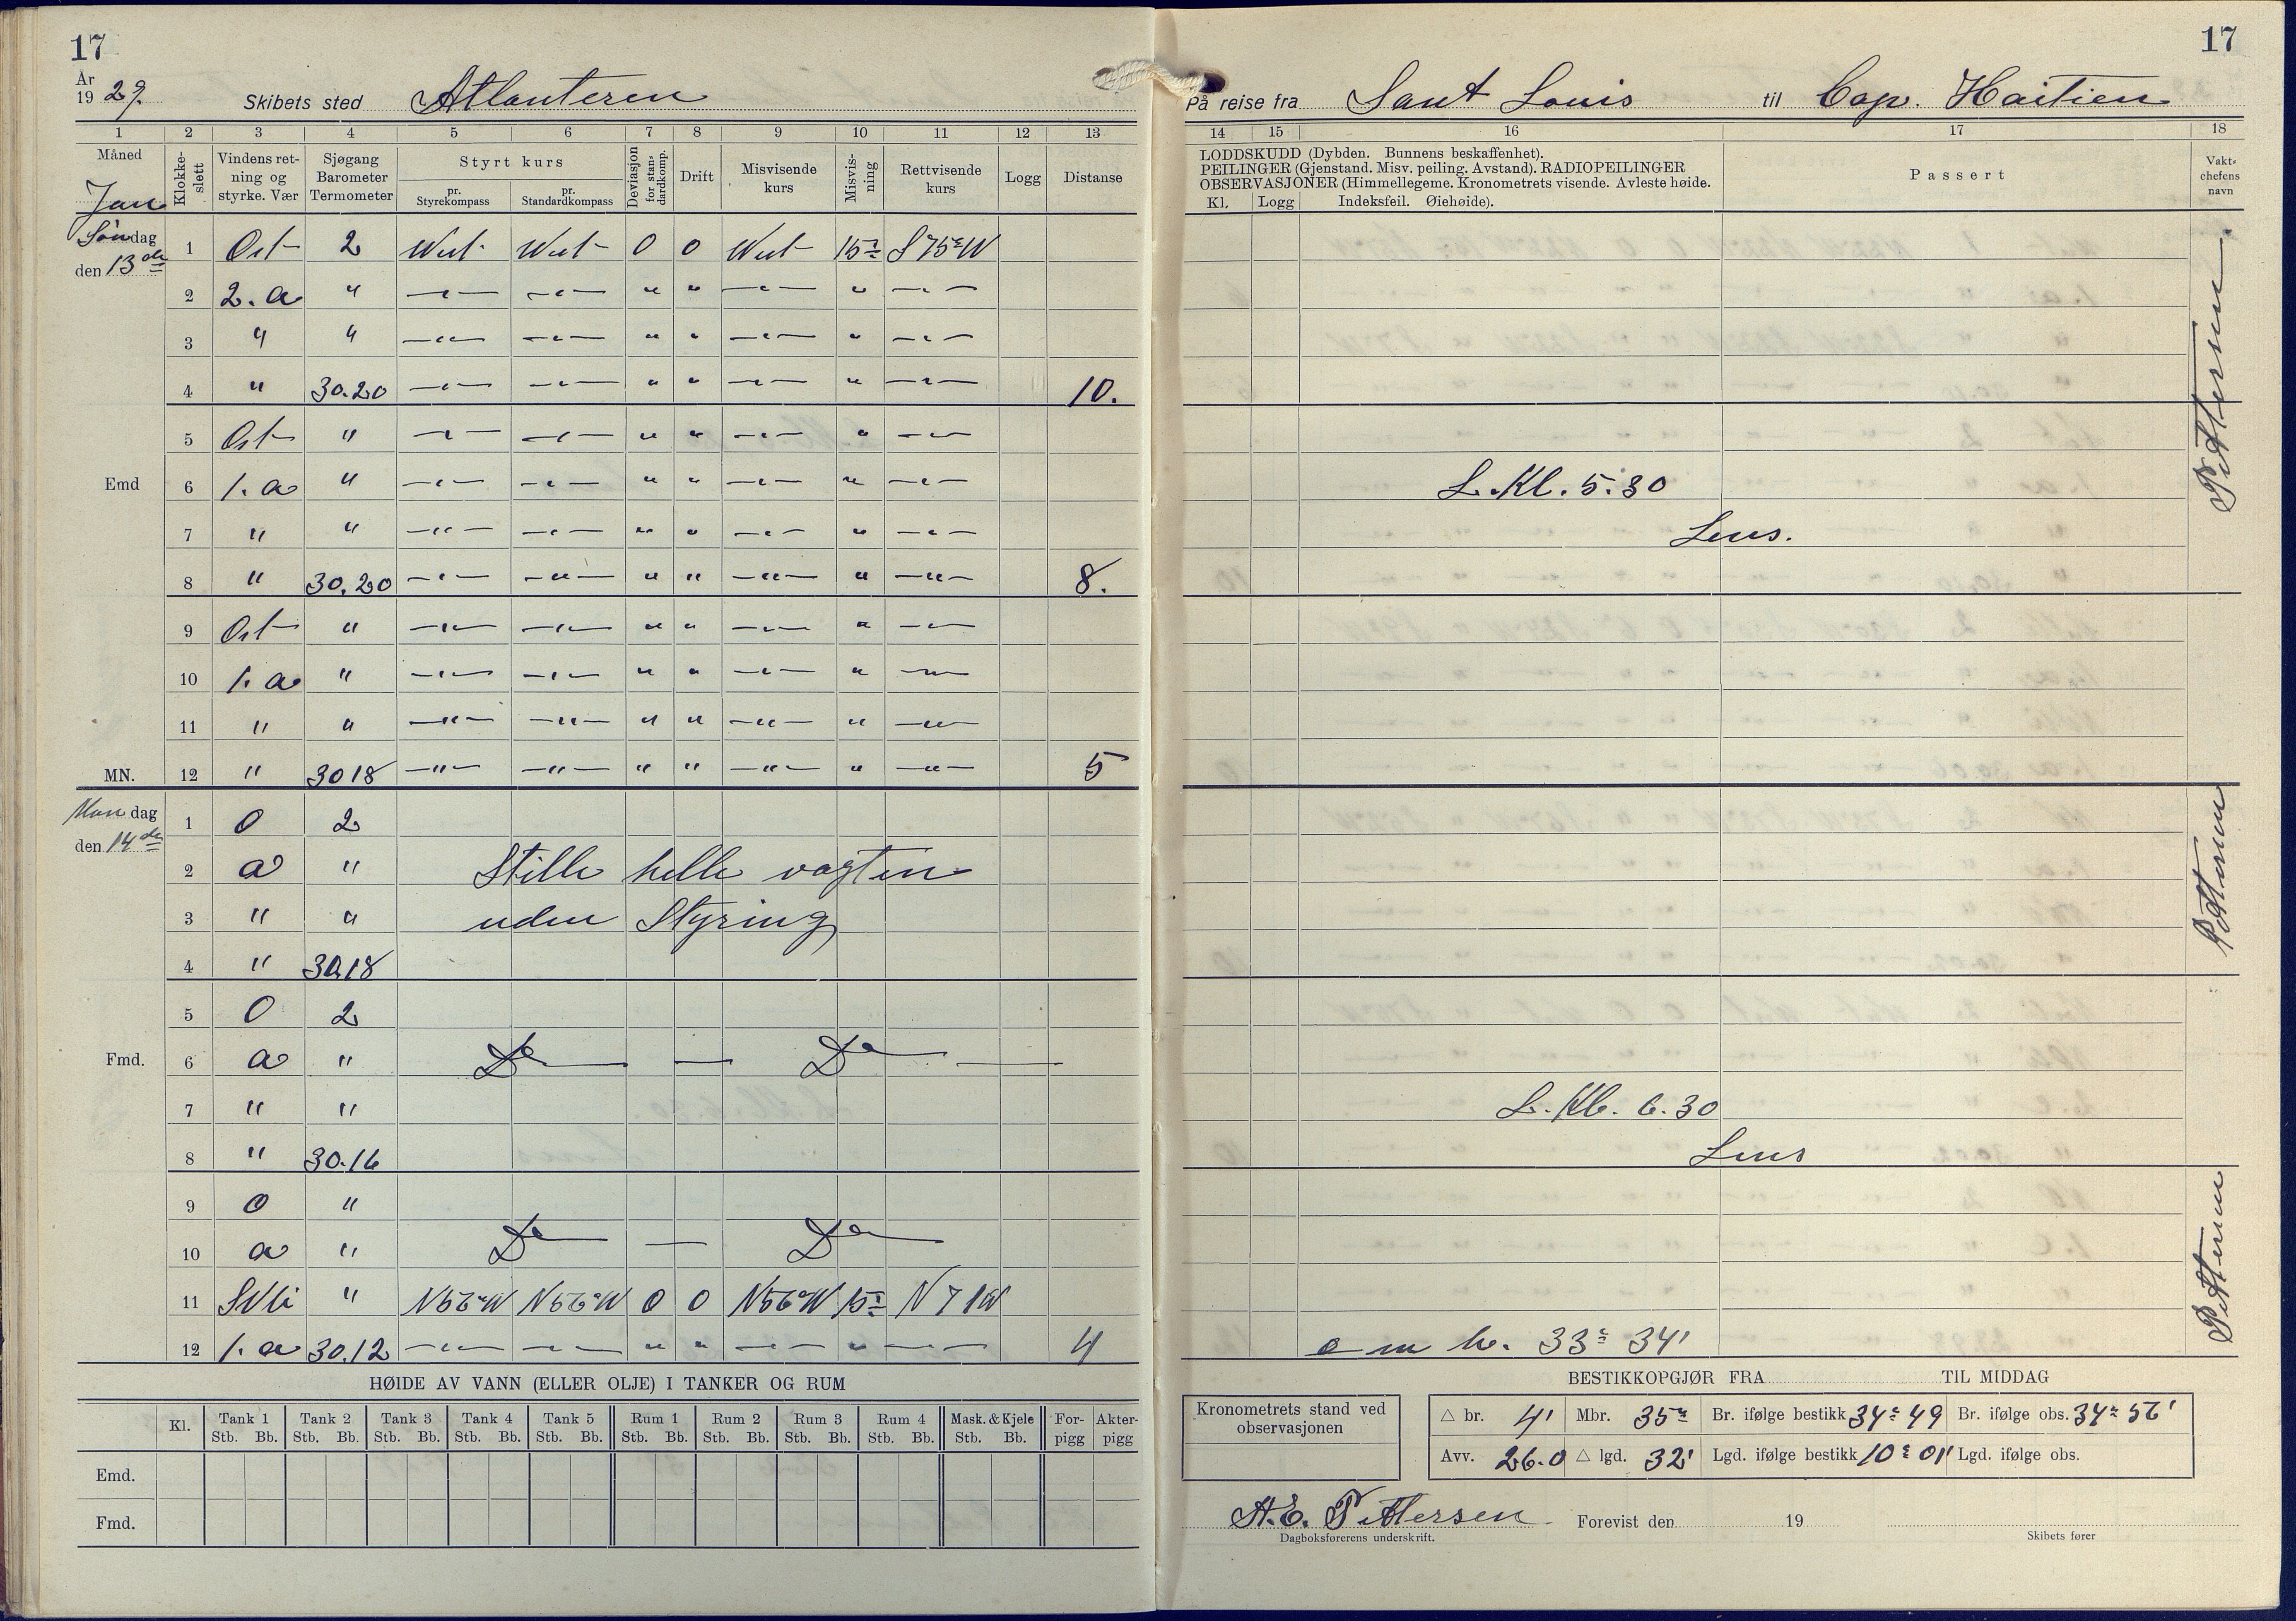 17
År
1929.
Skibets sted Atlanteren
1 2 3 4 5 6 7 8 9 10 11 12 13
Måned
Jan
Klokke-
slett
Vindens ret-
ning og
styrke. Vær
Sjøgang
Barometer
Termometer
Styrt kurs
pr.
Styrekompass
pr.
Standardkompass
Deviasjon
for stan-
dardkomp.
Drift
Misvisende
kurs
Misvis-
ning
Rettvisende
kurs
Logg
Distanse
Søndag
den 13de
1 Ost 2 West West 0 0 West 15° S 75° W
2 2. a " — " — — " — " " — " — " — " —
3 " " — " — — " — " " — " — " — " —
4 " 30.20 — " — — " — " " — " — " — " — 10.
5 Ost " — " — — " — " " — " — " — " —
Emd
6 1. a " — " — — " — " " — " — " — " —
7 " " — " — — " — " " — " — " — " —
8 " 30.20 — " — — " — " " — " — " — " — 8.
9 Ost " — " — — " — " " — " — " — " —
10 1. a " — " — — " — " " — " — " — " —
11 " " — " — — " — " " — " — " — " —
MN. 12 " 3018 — " — — " — " " — " — " — " — 5
Mandag
den 14de
1 0 2
2 a " Stille helle vagten
3 " " uden Styring
4 " 30.18
5 0 2
Fmd.
6 a " Do — — Do — —
7 " "
8 " 30.16
9 0 "
10 a " Do — — Do —
11 " N 56° W N 56° W 0 0 N 56° W 15° N 71 W
12 1. a 30.12 — " — — " — " " — " — " — " — 4
HØIDE AV VANN (ELLER OLJE) I TANKER OG RUM
Kl. Tank 1 Tank 2 Tank 3 Tank 4 Tank 5 Rum 1 Rum 2 Rum 3 Rum 4 Mask. & Kjele For-
pigg Akter-
pigg
Stb. Bb. Stb. Bb. Stb. Bb. Stb. Bb. Stb. Bb. Stb. Bb. Stb. Bb. Stb. Bb. Stb. Bb. Stb. Bb.
Emd.
Fmd.
17
På reise fra Sant Louis til Cap. Haitien
14 15 16 17 18
LODDSKUDD (Dybden. Bunnens beskaffenhet).
PEILINGER (Gjenstand. Misv. peiling. Avstand). RADIOPEILINGER
OBSERVASJONER (Himmellegeme. Kronometrets visende. Avleste høide.
Kl. Logg Indeksfeil. Øiehøide).
Passert
Vakt-
chefens
navn
Pettersen
L. Kl. 5.30
Lens.
Pettersen
L. Kl. 6.30
Lens
Pettersen
o m h. 33° 34'
BESTIKKOPGJØR FRA TIL MIDDAG
Kronometrets stand ved
observasjonen
△ br. 4' Mbr. 35° Br. ifølge bestikk 34° 49 Br. ifølge obs. 34° 56'
Avv. 26.0 △ lgd. 32' Lgd. ifølge bestikk 10° 01' Lgd. ifølge obs.
H.E. Pettersen
Dagboksførerens underskrift.
Forevist den 19
Skibets fører